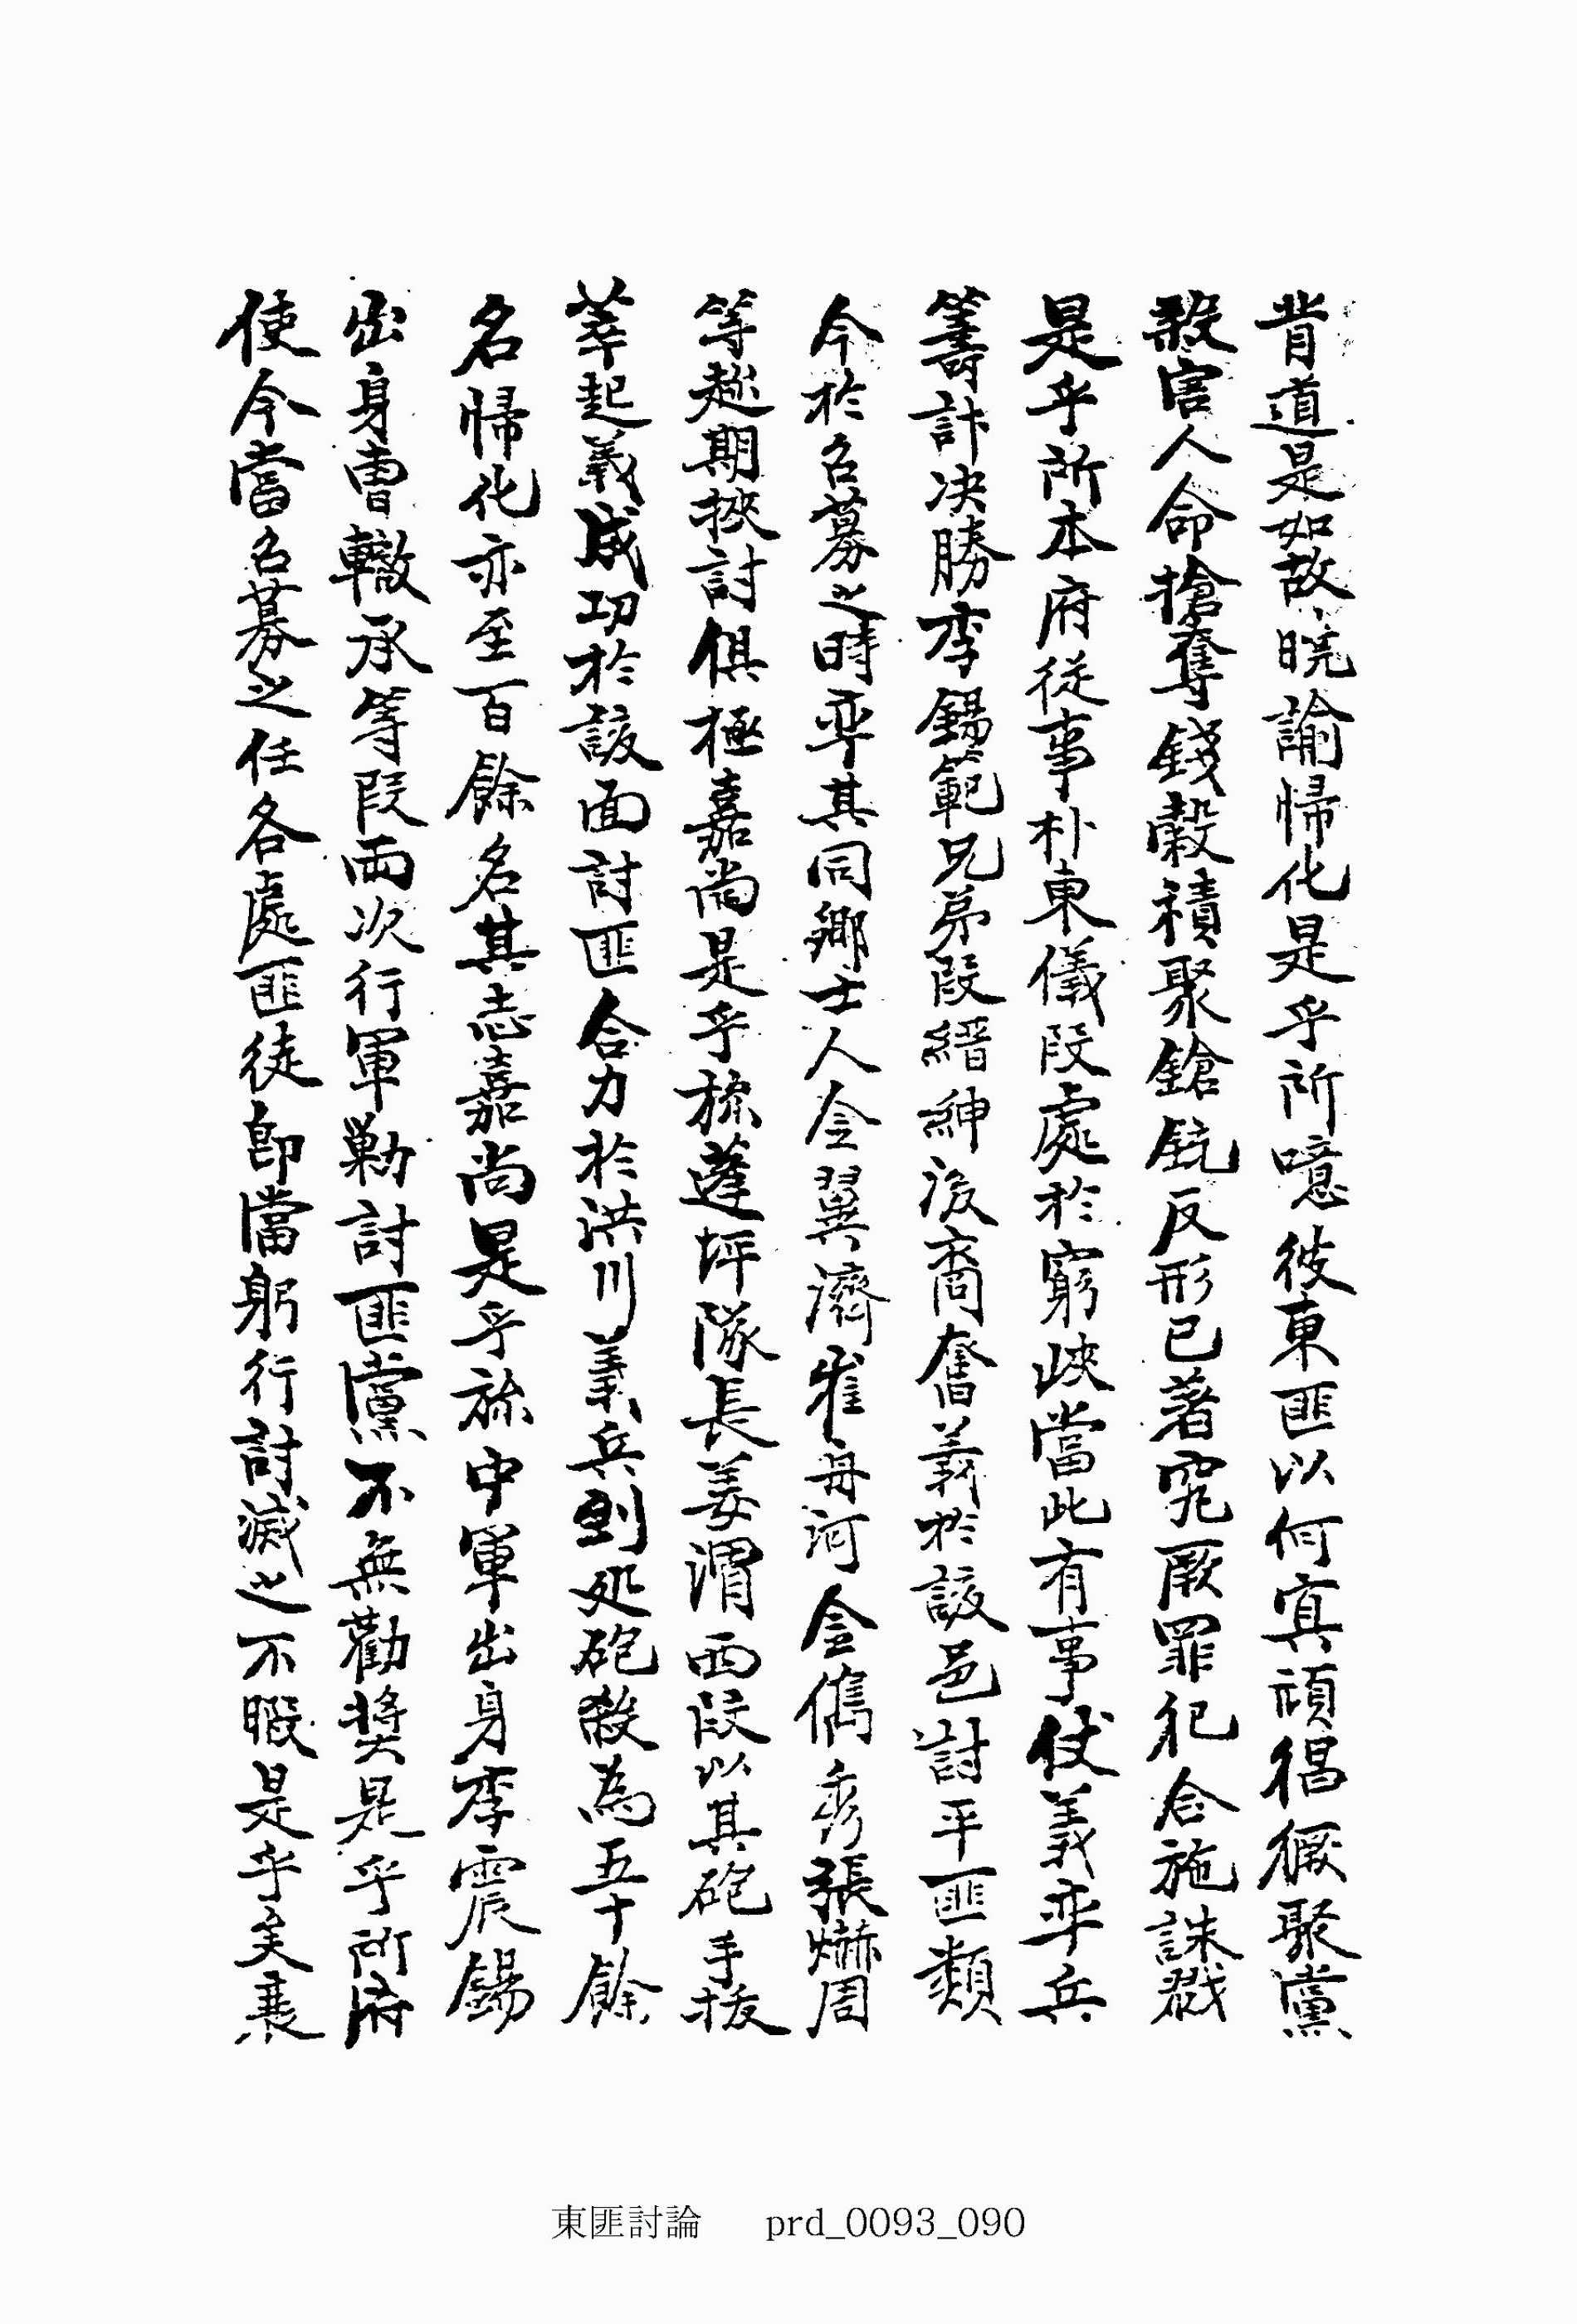 背道是如故曉諭帰化是乎所噫彼東匪以何寘頑猖獗聚黨
殺害人命搶奪錢穀積聚鎗銃反形已著究厥罪犯合施誅戮
是乎所本府從事朴東儀段處於窮峽當此有事仗義率兵
籌計決勝李錫範兄弟段縉紳後裔奮義於該邑討平匪類
今於召募之時率其同鄉士人金翼濟崔舟河金儁秀張爀周
等趂期挾討俱極嘉尚是乎旀蓬坪隊長姜渭西段以其砲手拔
萃起義成功於該面討匪合力於洪川義兵到処砲殺為五十餘
名帰化亦至百餘名其志嘉尚是乎旀中軍出身李震錫
出身曺轍承等段両次行軍勦討匪黨不無勸奬是乎所府
使今當召募之任各處匪徒卽當躬行討滅之不暇是乎矣兼
東匪討論 prd_0093_090